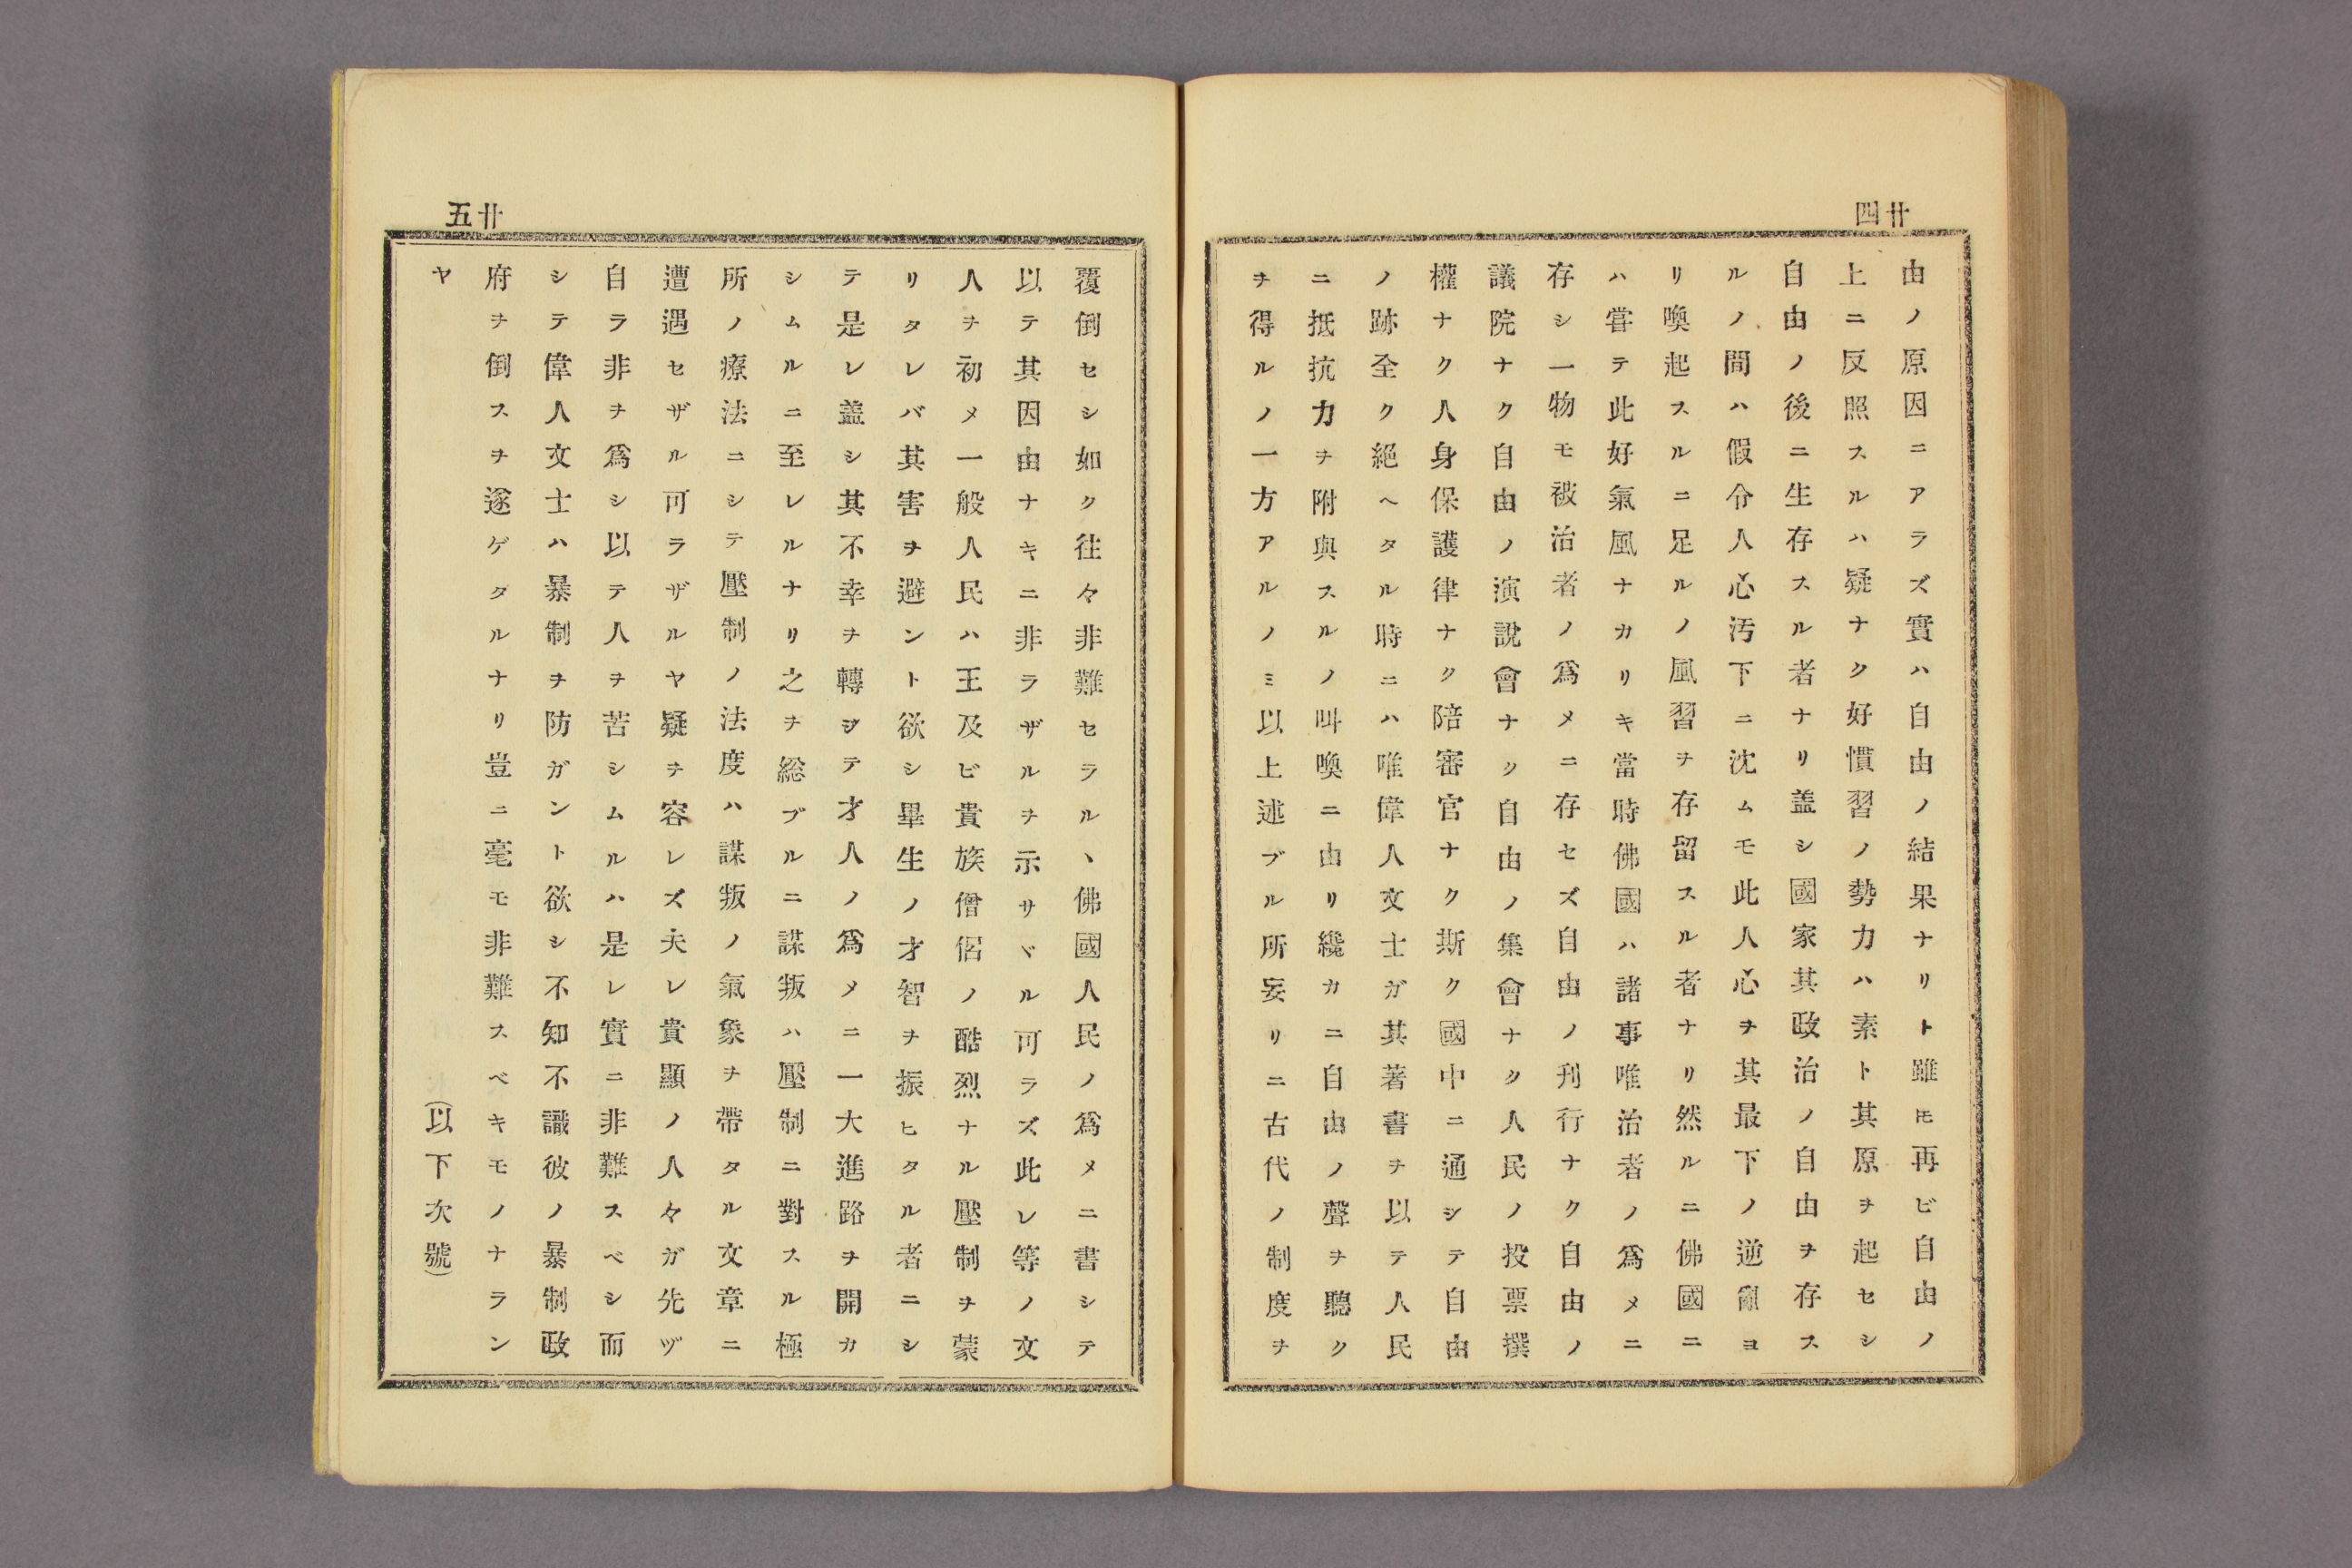 廿四
由ノ原因ニアラズ實ハ自由ノ結果ナリト雖𪜈再ビ自由ノ
上ニ反照スルハ疑ナク好慣習ノ勢力ハ素ト其原ヲ起セシ
自由ノ後ニ生存スル者ナリ盖シ國家其政治ノ自由ヲ存ス
ルノ間ハ假令人心汚下ニ沈ムモ此人心ヲ其最下ノ逆亂ヨ
リ喚起スルニ足ルノ風習ヲ存留スル者ナリ然ルニ佛國ニ
ハ嘗テ此好氣風ナカリキ當時佛國ハ諸事唯治者ノ爲メニ
存シ一物モ被治者ノ爲メニ存セズ自由ノ刊行ナク自由ノ
議院ナク自由ノ演說會ナク自由ノ集會ナク人民ノ投票撰
權ナク人身保護律ナク陪審官ナク斯ク國中ニ通シテ自由
ノ跡全ク絕ヘタル時ニハ唯偉人文士ガ其著書ヲ以テ人民
ニ抵抗力ヲ附與スルノ叫喚ニ由リ纔カニ自由ノ聲ヲ聽ク
ヲ得ルノ一方アルノミ以上述ブル所妄リニ古代ノ制度ヲ
廿五
覆倒セシ如ク往々非難セラルヽ佛國人民ノ爲メニ書シテ
以テ其因由ナキニ非ラザルヲ示サヾル可ラズ此レ等ノ文
人ヲ初メ一般人民ハ王及ビ貴族僧侶ノ酷烈ナル壓制ヲ蒙
リタレバ其害ヲ避ント欲シ畢生ノ才智ヲ振ヒタル者ニシ
テ是レ盖シ其不幸ヲ轉ジテ才人ノ爲メニ一大進路ヲ開カ
シムルニ至レルナリ之ヲ総ブルニ謀叛ハ壓制ニ對スル極
所ノ療法ニシテ壓制ノ法度ハ謀叛ノ氣象ヲ帶タル文章ニ
遭遇セザル可ラザルヤ疑ヲ容レズ夫レ貴顯ノ人々ガ先ヅ
自ラ非ヲ爲シ以テ人ヲ苦シムルハ是レ實ニ非難スベシ而
シテ偉人文士ハ暴制ヲ防ガント欲シ不知不識彼ノ暴制政
府ヲ倒スヲ遂ゲタルナリ豈ニ毫モ非難スベキモノナラン
ヤ
(以下次號)